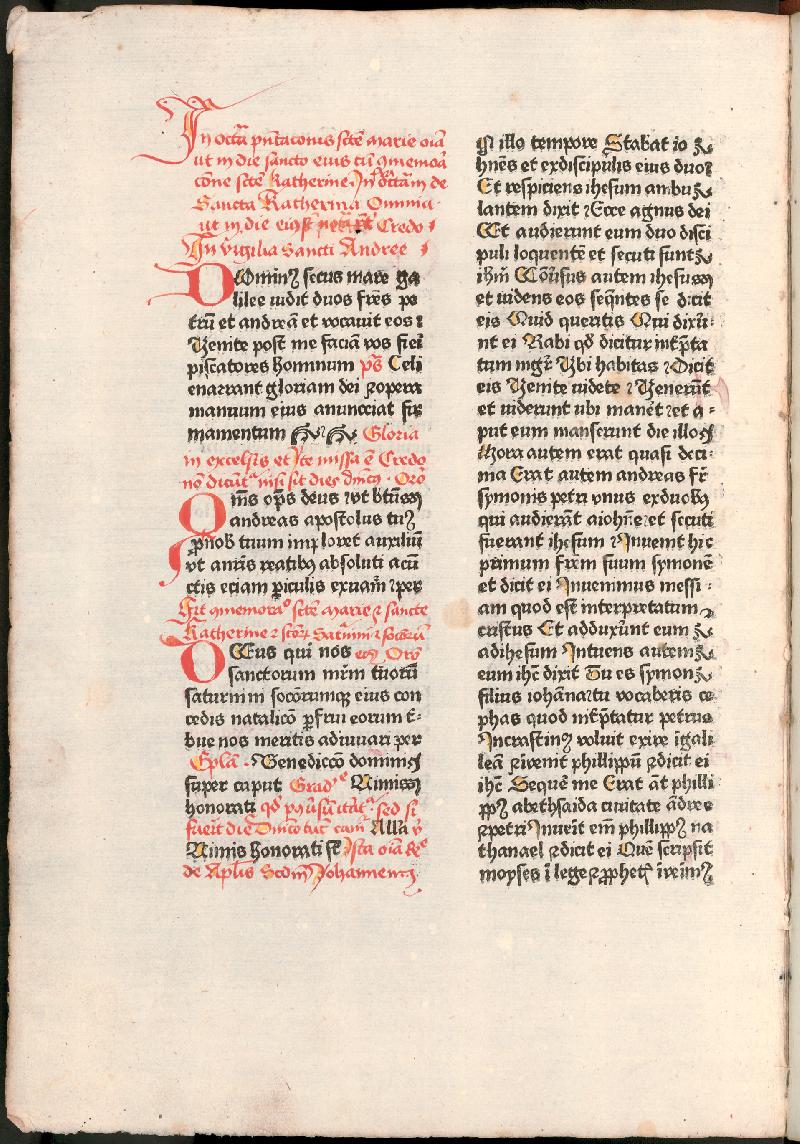 In octã pñtaconis scte marie oĩa
ut in die sancto eius cũ ꝯmemoã
cõne scte Katherine. In octam de
Sancta Katherina Omnia
ut in die eius Credo
In vigilia Sancti Andree
DOminꝰ secus mare ga
lilee uidit duos frẽs pe
trũ et andreã et vocauit eos ⁊
Venite post me faciã vos fiei
piscatores hominum pš Celi
enarrant gloriam dei ⁊ opera
manuum eius anunciat fir
mamentum Gloria
in excelsis et Ite missa ẽ Credo
nõ dicũt nisi sit dies dñicꝰ. Orõ
Oms ops deus vt btũs
andreas apostolus tuꝰ
ꝓ nob tuum imploret auxiliũ
vt anris reatibꝫ absoluti a cũ
ctis eciam ꝑiculis exuam ꝑ per
Fit ꝯmemorao scte marie ⁊ sancte
Katherine ⁊ scorꝝ Saturnini ⁊ socioru
DEus qui nos eoꝝ Orõ
sanctorum mrm tuorũ
saturnini socorumqꝫ eius con
cedis natalicõ ꝑfrui eorum t̃-
bue nos meritis adiuuari per
Epla. Benediccõ dominiꝫ
super caput Grad Nimis
honorati sed si
fuerit die Dñico tũc cam Alla v̾
Nimis honorati st Ista oĩa Re
de Aplis Scdm Johannem
In illo tempore Stabat io
hñes et ex discipulis eius duo
Et respiciens ihesum ambu
lantem dixit Ecce agnus dei
Et audierunt eum duo disci
puli loquentẽ et secuti sunt
ihm Cõuersus autem ihesus
et uidens eos seqntes se dicit
eis Quid queritis Qui dixũ
nt ei Rabi qd dicitur intꝑta
tum mgr Vbi habitas Dicit
eis Venite uidete Venerũt
et uiderunt ubi manẽt et a-
put eum manserunt die illo
Hora autem erat quasi deci-
ma Erat autem andreas fr̃
symonis petri vnus ex duobꝫ
qui audierãt a iohñe et secuti
fuerant ihesum Inuenit hic
primum frem suum symonẽ
et dicit ei Inuenimus messi-
am quod est interpretatum
cristus Et adduxũnt eum
ad ihesum Intuens autem
eum ihc dixit Tu es symon
filius iohãna tu vocaberis ce
phas quod intꝑtatur petrus
In crastinꝰ voluit exire ĩ gali
leã ⁊ inuenit phillippũ ⁊ dicit ei
ihc Sequẽ me Erat ãt philli
ppꝰ a bethsaida ciuitate ãdree
⁊ petri Inuẽit em phillippꝰ na
thanael ⁊ dicit ei Quẽ scripsit
moyses ĩ lege ⁊ ꝓphet ĩueĩmꝰ